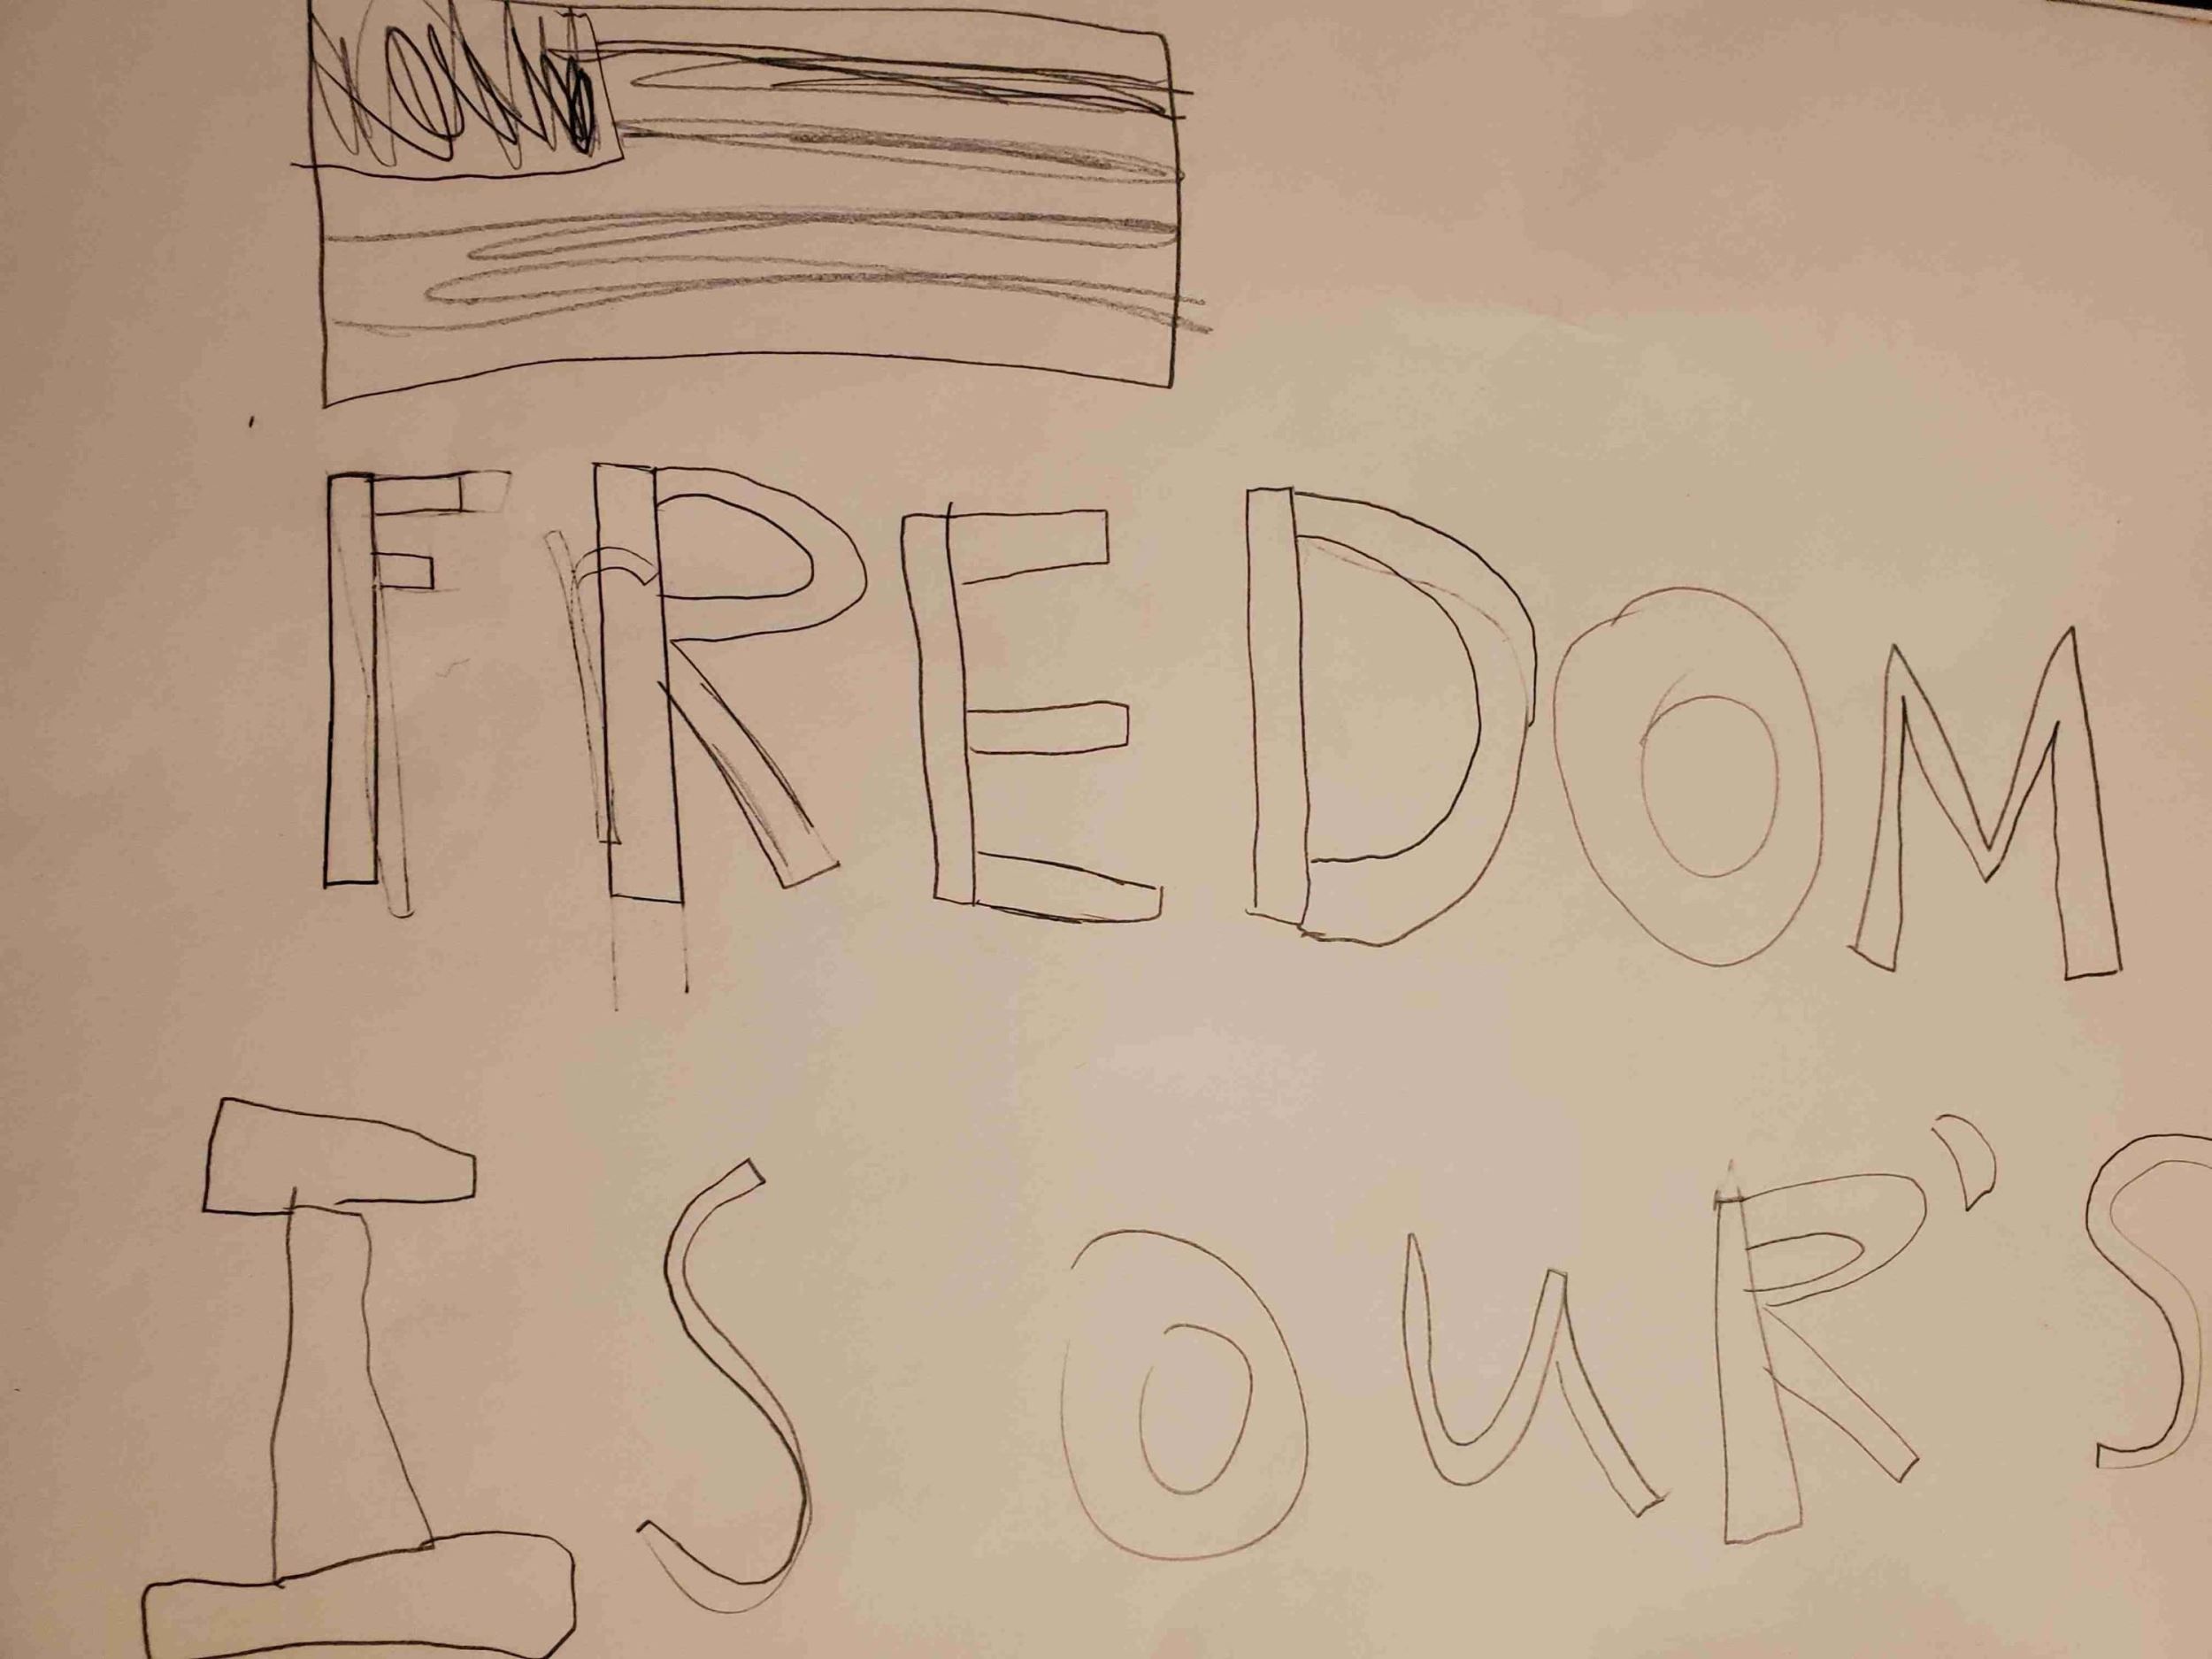 FREDOM
IS OUR'S